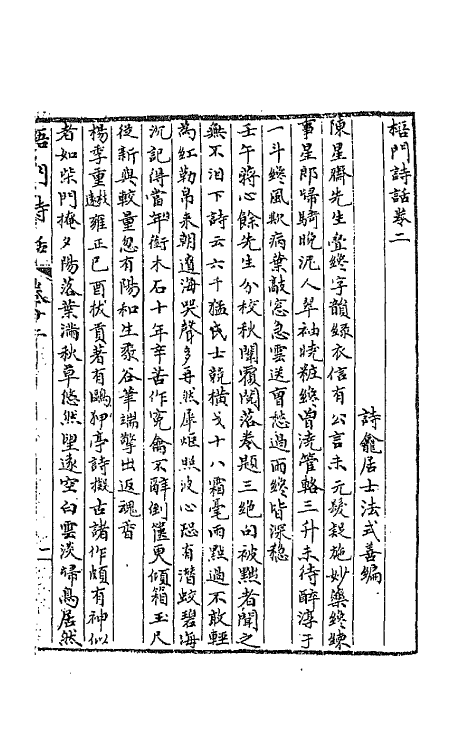 梧門詩話卷二
詩龕居士法式善編
陳星齋先生疊終字韻綠衣信有公言未元髮疑施妙藥終諫
事星郎歸騎晚泥人翠袖燒粧終曾澆管輅三升未待醉淳于
一斗終風欺病葉敲窓急雲送詈愁過雨終皆深穩
壬午蔣心餘先生分校秋闈覆閱落卷題三絕句被黜者聞之
無不泪下詩云六千猛氏士競橫戈十八霜毫雨點過不敢輕
萬紅勒帛來朝遺海哭聲多再然犀炬照波心恐有潛蛟碧海
沉記得當年銜木石十年辛苦作寃禽不辭倒篋更傾箱玉尺
從新與較量忽有陽和生黍谷筆端擎出返魂香
楊季重雍正己酉拔貢著有鷗亭詩擬古諸作頗有神似
者如柴門掩夕陽落葉滿秋草悠然望遠空白雲淡歸鳥居然
梧門詩話
卷十二